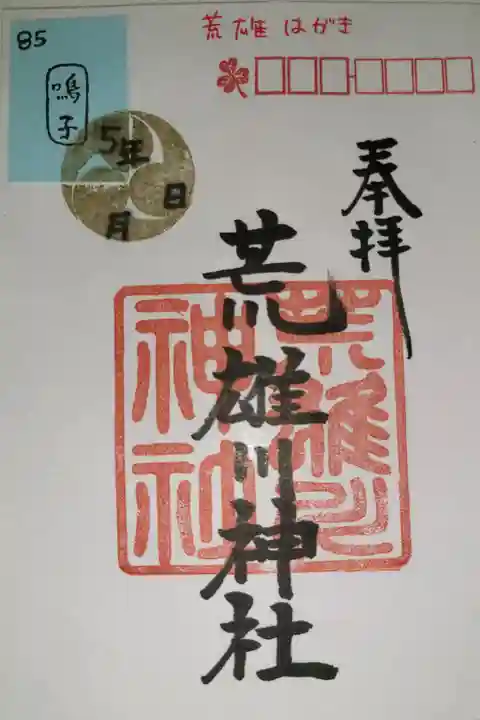 85
鳴子
荒雄 はがき
5年
月
日
奉拝
荒雄川神社
荒雄川
神社